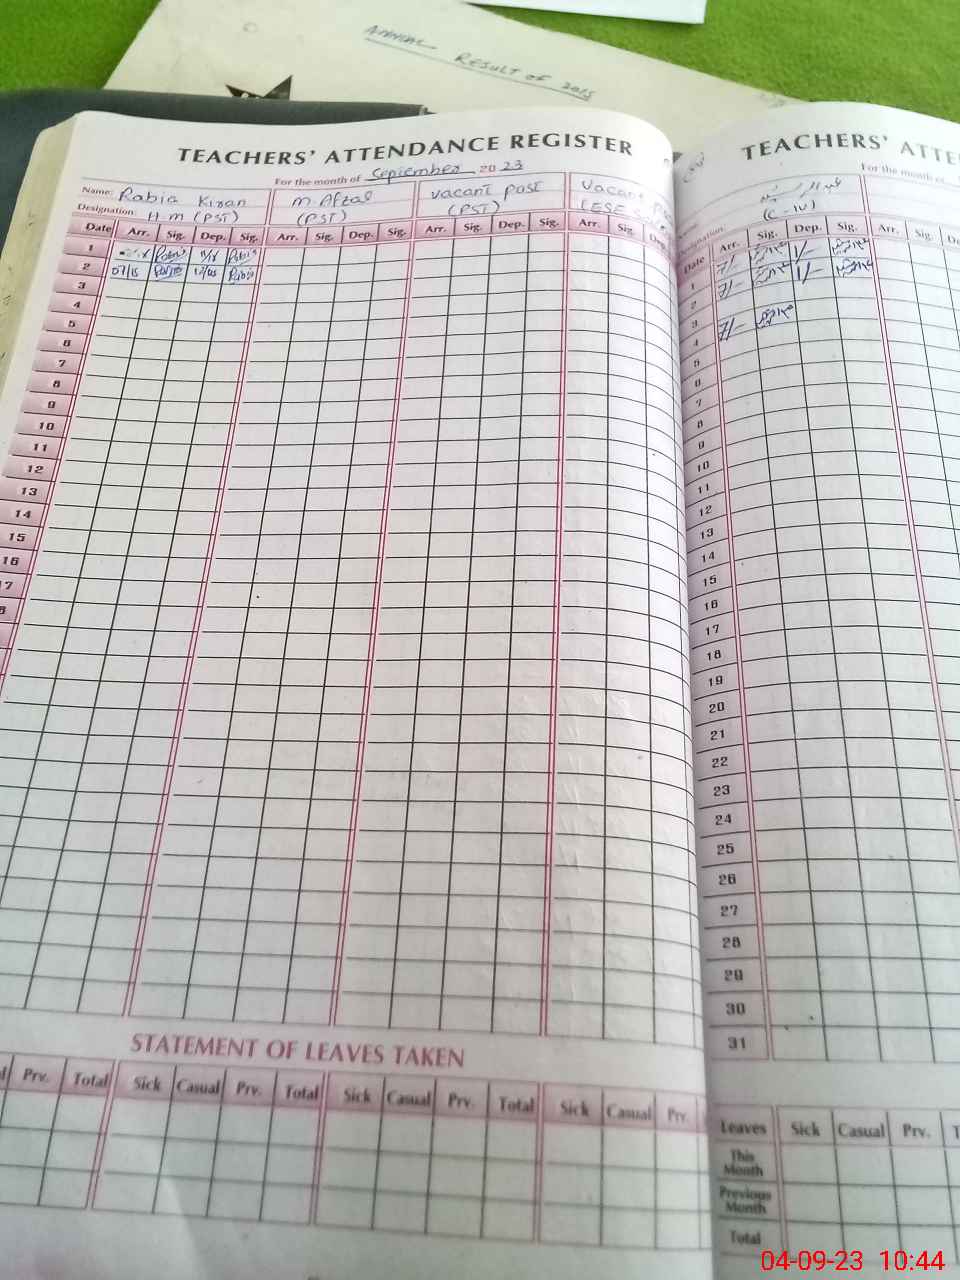 ANNUAL RESULT OF 2015
TEACHERS' ATTENDANCE REGISTER
For the month of September 2023
Name: Rabia Kiran M. Afzal Vacant Post Vacant
Designation: H.M (PST) (PST) (PST) (ESE
Date Arr. Sig. Dep. Sig. Arr. Sig. Dep. Sig. Arr. Sig. Dep. Sig. Arr. Sig. Dep.
1 Rabia Rabia
2 07/15 Rabia Rabia
3
4
5
6
7
8
9
10
11
12
13
14
15
16
17
STATEMENT OF LEAVES TAKEN
Prv. Total Sick Casual Prv. Total Sick Casual Prv. Total Sick Casual Prv.
TEACHERS' ATTE
For the month of
(C-IV)
Designation:
Date Arr. Sig. Dep. Sig. Arr. Sig. De
1 7/- 1/-
2 7/- 1/-
3
4 7/-
5
6
7
8
9
10
11
12
13
14
15
16
17
18
19
20
21
22
23
24
25
26
27
28
29
30
31
Leaves Sick Casual Prv. T
This Month
Previous Month
Total
04-09-23 10:44